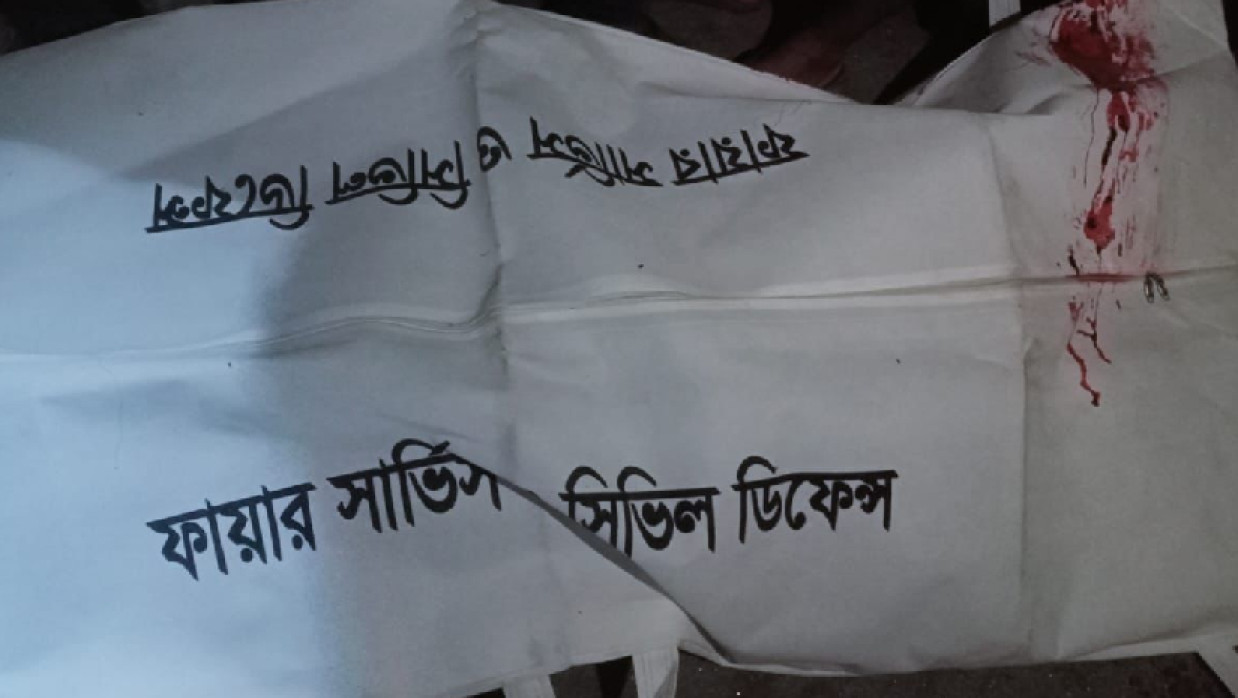 ফায়ার সার্ভিস ও সিভিল ডিফেন্স
ফায়ার সার্ভিস সিভিল ডিফেন্স